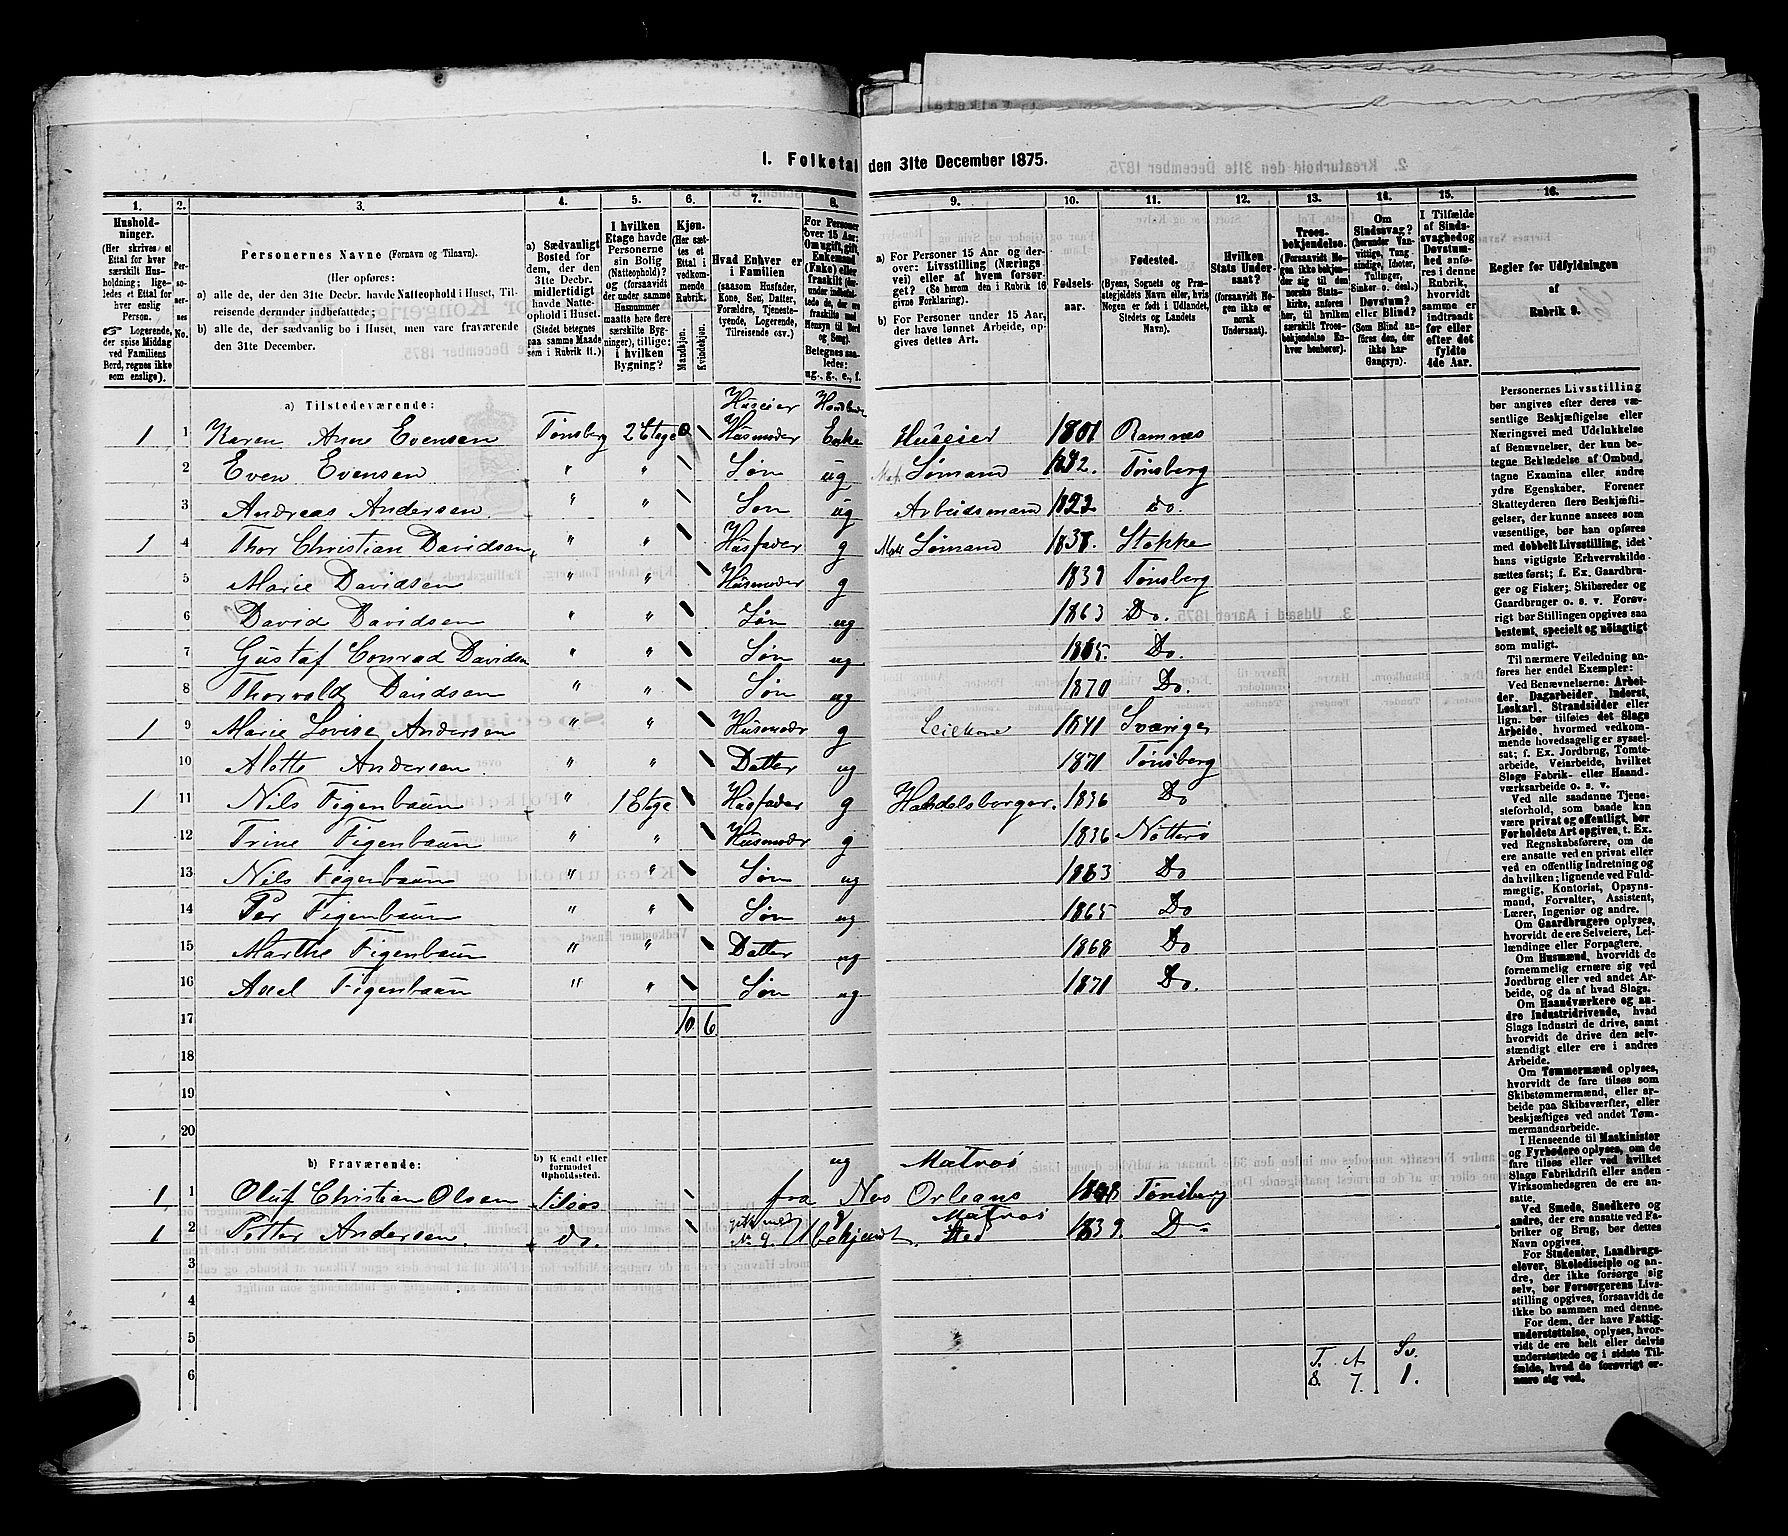 1. Folketal den 31te December 1875.
1. Husholdninger. (Her skrives et Ettal for hver særskilt Husholdning; ligeledes et Ettal for hver enslig Person. ☞ Logerende, der spise Middag ved Familiens Bord, regnes ikke som enslige).
2. Personernes No.
3. Personernes Navne (Fornavn og Tilnavn). (Her opføres: a) alle de, der den 31te Decbr. havde Natteophold i Huset, Tilreisende derunder indbefattede; b) alle de, der sædvanlig bo i Huset, men vare fraværende den 31te December.
4. a) Sædvanligt Bosted for dem, der den 31te Decbr. midlertidigt havde Natteophold i Huset. (Stedet betegnes paa samme Maade som i Rubrik 11.)
5. I hvilken Etage havde Personerne sin Bolig (Natteophold)? og (forsaavidt der under samme Husnummer maatte høre flere særskilte Bygninger), tillige: i hvilken Bygning?
6. Kjøn. (Her sættes et Ettal i vedkommende Rubrik. Mandkjøn. Kvindekjøn.
7. Hvad Enhver er i Familien (saasom Husfader, Kone, Søn, Datter, Forældre, Tjenestetyende, Logerende, Tilreisende osv.)
8. For Personer over 15 Aar: Om ugift, gift, Enkemand (Enke) eller fraskilt
Betegnes saaledes: ug., g., e., f.
9. a) For Personer 15 Aar og derover: Livsstilling (Næringsvei) eller af hvem forsørget? (Se herom den i Rubrik 16 givne Forklaring). b) For Personer under 15 Aar, der have lønnet Arbeide, opgives dettes Art.
10. Fødselsaar.
11. Fødested. (Byens, Sognets og Præstegjeldets Navn eller, hvis Nogen er født i Udlandet, Stedets og Landets Navn).
12. Hvilken Stats Undersaat? (forsaavidt Nogen ikke er norsk Undersaat).
13. Troesbekjendelse. (Forsaavidt Nogen ikke bekjender sig til den norske Statskirke, anføres her, til hvilken særskilt Troesbekjendelse Enhver henhører).
14. Om Sindssvag?
Døvstum? eller Blind?
15. I Tilfælde af Sindssvaghed og Døvstumhed anføres i denne Rubrik, hvorvidt samme er indtraadt før eller efter det fyldte 4de Aar.
16. Regler for Udfyldningen af Rubrik 9.
a) Tilstedeværende:
Huseier
1 1 Karen Anne Evensen Tønsberg 2 Etage Husmoder Enke Huseier 1801 Ramnæs
2 Even Evensen " " Søn ug Sømand Tønsberg
3 Andreas Andersen " " Søn ug Arbeidsmand do.
1 4 Thor Christian Davidsen " " Husfader g Sømand 1838. Stokke
5 Marie Davidsen " " Husmoder g 1839 Tønsberg
6 David Davidsen " " Søn ug 1863 Do.
7 Gustaf Conrad Davidsen " " Søn ug 1865. Do.
8 Thorvald Davidsen " " Søn ug 1870 Do.
1 9 Marie Lovise Andersen " " Husmoder g 1841 Sværiges
10 Alotte Andersen " " Datter ug 1871 Tønsberg
1 11 Nils Figenbaum " 1 Etage Husfader g Handelsborger. 1836 Do
12 Trine Figenbaum " " Husmoder g 1836 Nøtterø
13 Nils Figenbaum " " Søn ug 1863 Do
14 Per Figenbaum " " Søn ug 1865 Do
15 Marthe Figenbaum " " Datter ug 1868 Do
16 Axel Figenbaum " " Søn ug 1871 Do.
17 10 6
18
19
20
b) Fraværende: b) Kjendt eller formodet Opholdssted. ug Matros
1 1 Oluf Christian Olsen Tilsøs fra Neo Orleans Tønsberg
g Matros
1 2 Petter Andersen. do. Ubekjendt Sted 1839. Do
3
4
5
6
T. A Sv.
8. 7. 1.
Personernes Livsstilling bør angives efter deres væsentlige Beskjæftigelse eller Næringsvei med Udelukkelse af Benævnelser, der kun betegne Beklædelse af Ombud, tagne Examina eller andre ydre Egenskaber. Forener Skatteyderen flere Beskjæftigelser, der kunne ansees som væsentlige, bør han opføres med dobbelt Livsstilling, idet hans vigtigste Erhvervskilde sættes først; f. Ex. Gaardbruger og Fisker; Skibsreder og Gaardbruger o. s. v. Forøvrigt bør Stillingen opgives saa bestemt, specielt og nöiagtigt som muligt.
Til nærmere Veiledning anføres her endel Exempler:
Ved Benævnelserne: Arbeider, Dagarbeider, Inderst, Løskarl, Strandsidder eller lign. bør tilføies det Slags Arbeide, hvormed vedkommende hovedsagelig er sysselsat; f. Ex. Jordbrug, Tomtearbeide, Veiarbeide, hvilket Slags Fabrik- eller Haandværksarbeide o. s. v.
Ved alle saadanne Tjenesteforhold, som baade kan være privat og offentligt, bør Forholdets Art opgives, t. Ex. ved Regnskabsførere, om de ere ansatte ved en privat eller ved en offentlig Indretning og da hvilken; lignende ved Fuldmægtig, Kontorist, Opsynsmand, Forvalter, Assistent, Lærer, Ingeniør og andre.
Om Gaardbrugere oplyses, hvorvidt de ere Selveiere, Leilændinge eller Forpagtere.
Om Husmænd, hvorvidt de fornemmelig ernære sig ved Jordbrug eller ved andet Arbeide, og da af hvad Slags.
Om Haandværkere og andre Industridrivende, hvad Slags Industri de drive, samt hvorvidt de drive den selvstændigt eller ere i andres Arbeide.
Om Tømmermænd oplyses, hvorvidt de fare tilsøs som Skibstømmermænd, eller arbeide paa Skibsværfter, eller beskjæftiges ved andet Tømmermandsarbeide.
I Henseende til Maskinister og Fyrbødere oplyses, om de fare tilsøs eller ved hvilket Slags Fabrikdrift eller anden Virksomhedsgren de ere ansatte.
Ved Smede, Snedkere og andre, der ere ansatte ved Fabriker og Brug, bør dettes Navn opgives.
For Studenter, Landbrugselever, Skoledisciple og andre, der ikke forsørge sig selv, bør Forsørgerens Livsstilling opgives, forsaavidt de ikke bo sammen med denne.
For dem, der have Fattigunderstøttelse, oplyses, hvorvidt de ere helt eller delvis understøttede og i sidste Tilfælde, hvad de forøvrigt ernære sig ved.